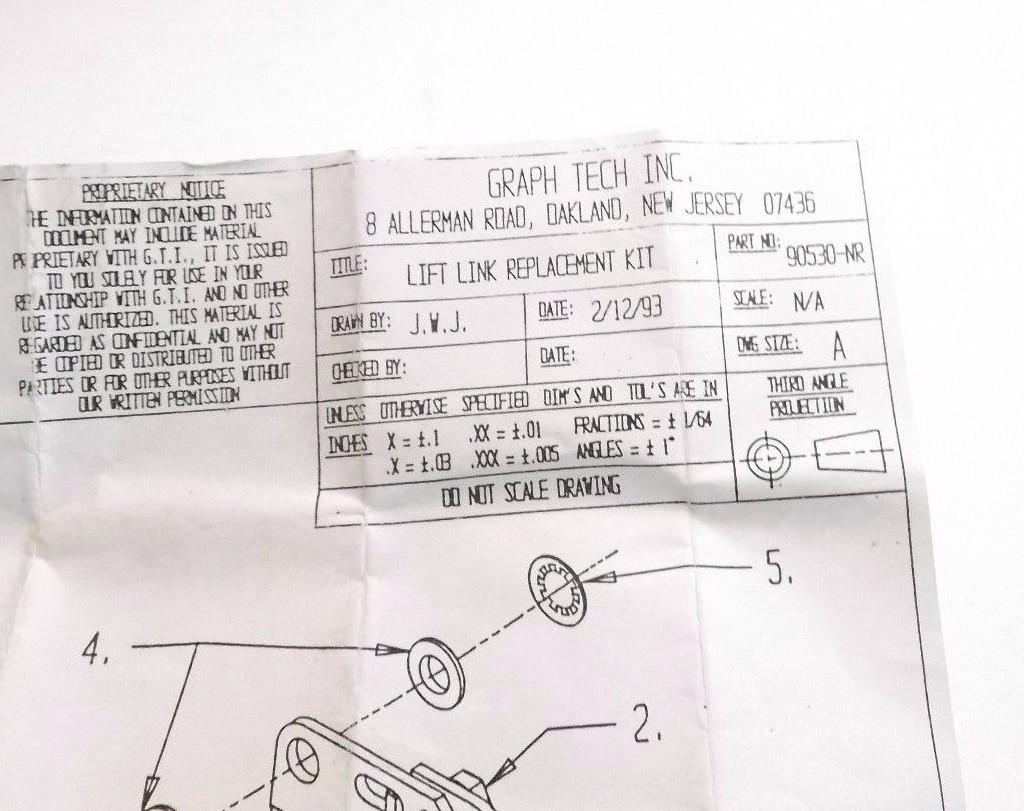 PROPRIETARY NOTICE
THE INFORMATION CONTAINED ON THIS
DOCUMENT MAY INCLUDE MATERIAL
PROPRIETARY WITH G.T.I., IT IS ISSUED
TO YOU SOLELY FOR USE IN YOUR
RELATIONSHIP WITH G.T.I. AND NO OTHER
USE IS AUTHORIZED. THIS MATERIAL IS
REGARDED AS CONFIDENTIAL AND MAY NOT
BE COPIED OR DISTRIBUTED TO OTHER
PARTIES OR FOR OTHER PURPOSES WITHOUT
OUR WRITTEN PERMISSION
GRAPH TECH INC.
8 ALLERMAN ROAD, OAKLAND, NEW JERSEY 07436
TITLE: LIFT LINK REPLACEMENT KIT
PART NO: 90530-NR
DRAWN BY: J.W.J.
DATE: 2/12/93
SCALE: N/A
CHECKED BY:
DATE:
DWG SIZE: A
UNLESS OTHERWISE SPECIFIED DIM'S AND TOL'S ARE IN
INCHES X = ±.1 .XX = ±.01 FRACTIONS = ± 1/64
.X = ±.03 .XXX = ±.005 ANGLES = ± 1°
THIRD ANGLE
PROJECTION
DO NOT SCALE DRAWING
5.
4.
2.